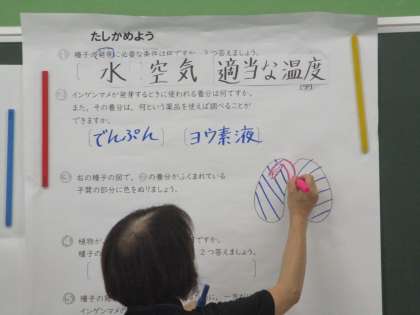 たしかめよう
① 種子の発芽に必要な条件は何ですか。3つ答えましょう。
水 空気 適当な温度
② インゲンマメが発芽するときに使われる養分は何ですか。
また、その養分は、何という薬品を使えば調べることが
できますか。
でんぷん ヨウ素液
③ 右の種子の図で、②の養分がふくまれている
子葉の部分に色をぬりましょう。
④ 植物が
ですか。
種子の
2つ答えましょう。
⑤ 種子の発
インゲンマメ